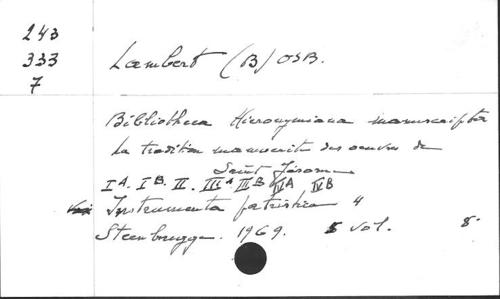 243
333
7
Lambert (B) OSB.
Bibliotheca Hieronymiana manuscripta
La tradition manuscrite des oeuvres de
Saint Jérome
I A. I B. II. III A III B IV A IV B
Instrumenta patristica 4
Steenbrugge. 1969. 5 vol. 8°